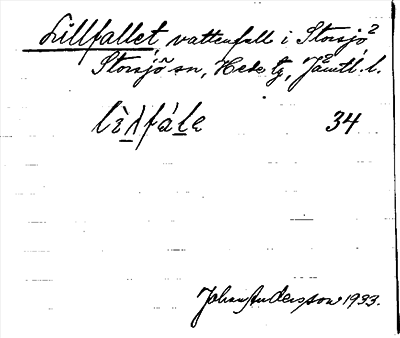 Lillfallet, vattenfall i Storsjö²
Storsjö sn, Hede tg, Jämtl. l.
lìλfále 34
Johan Andersson 1933.